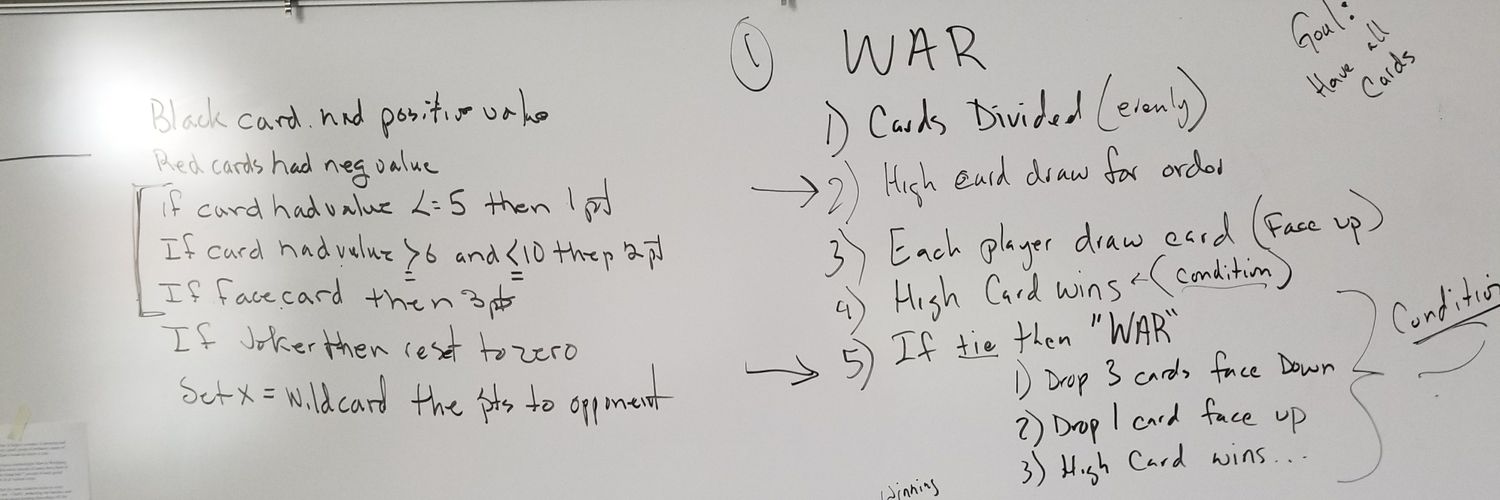 Black card had positive value
Red cards had neg value
if card had value <= 5 then 1 pt
If card had value ≥6 and ≤10 then 2 pt
If Face card then 3 pts
If Joker then reset to zero
Set x = wildcard the pts to opponent
① WAR
1) Cards Divided (evenly)
→ 2) High card draw for order
3) Each player draw card (Face up)
4) High Card wins ← (condition)
→ 5) If tie then "WAR"
1) Drop 3 cards face Down
2) Drop 1 card face up
3) High Card wins...
Winning
Goal:
Have all
Cards
Condition